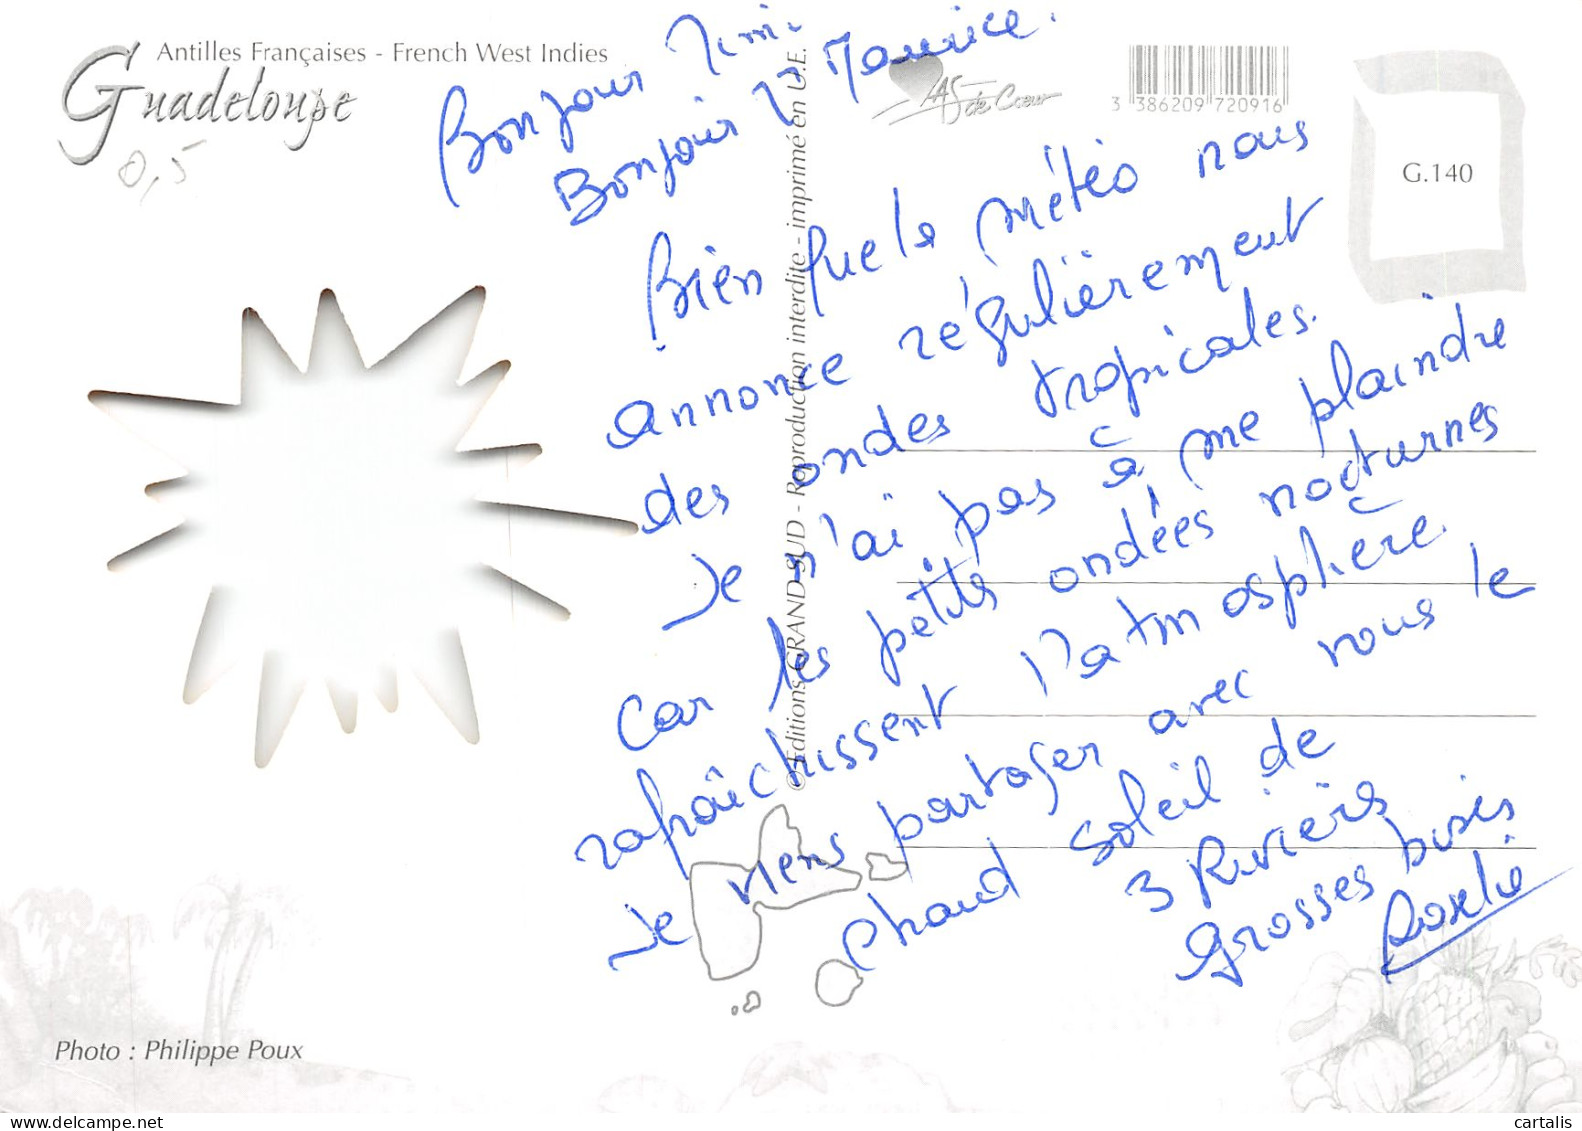 Antilles Françaises - French West Indies
Guadeloupe
0,5
AS de Cœur
3 386209 720916
G.140
© Editions GRAND SUD - Reproduction interdite - imprimé en U.E.
Bonjour Mimi.
Bonjour Maurice.
Bien que la météo nous
annonce régulièrement
des ondes tropicales.
Je n'ai pas à me plaindre
car les petites ondées nocturnes
rafraîchissent l'atmosphère.
Je viens partager avec vous le
chaud soleil de
3 Rivières
Grosses bises
Photo : Philippe Poux
cartalis